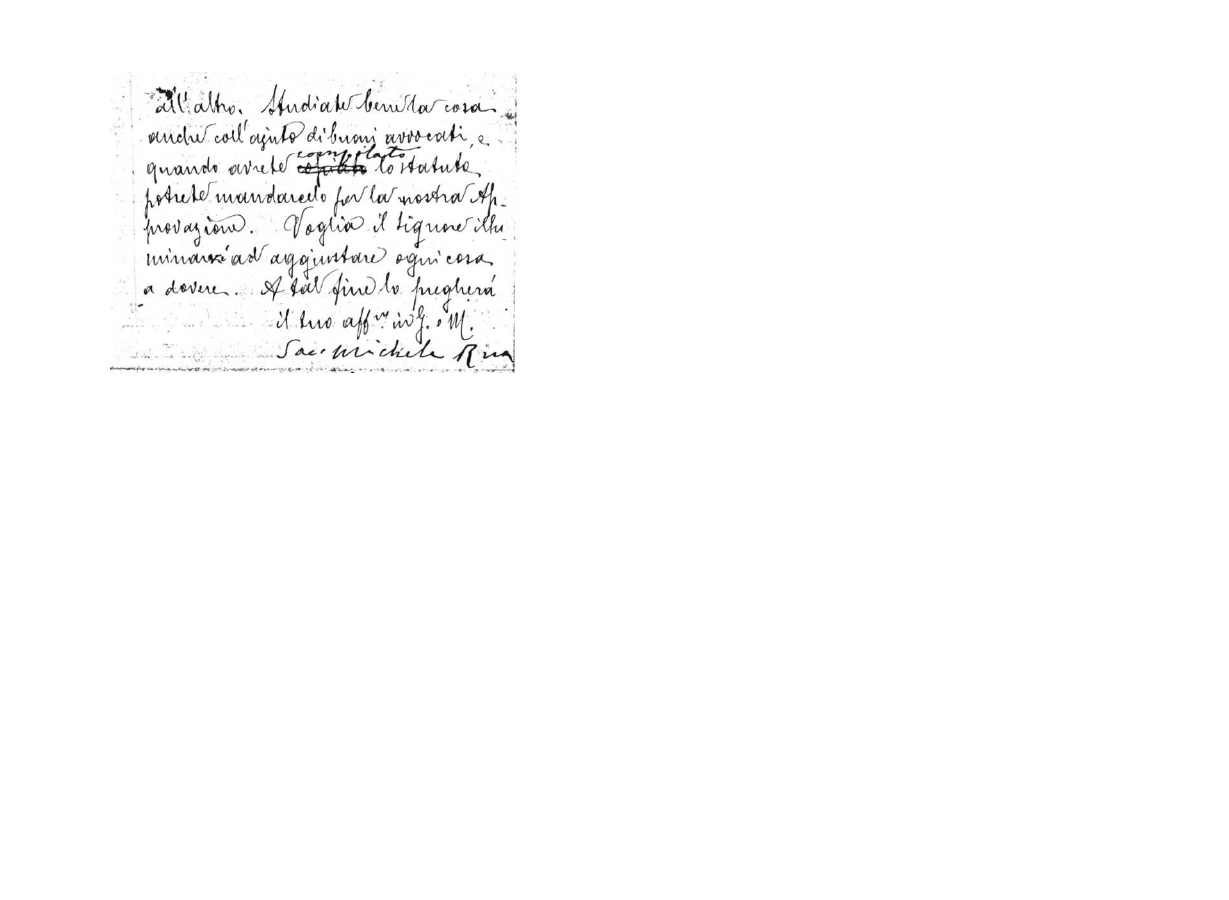 all'altro. Studiate bene la cosa
anche coll'ajuto di buoni avvocati, e
quando avrete compilato lo statuto
potrete mandarcelo per la nostra Ap-
provazione. Voglia il Signore illu
minarvi ad aggiustare ogni cosa
a dovere. A tal fine lo pregherá
il tuo aff.mo in G. e M.
Sac. Michele Rua